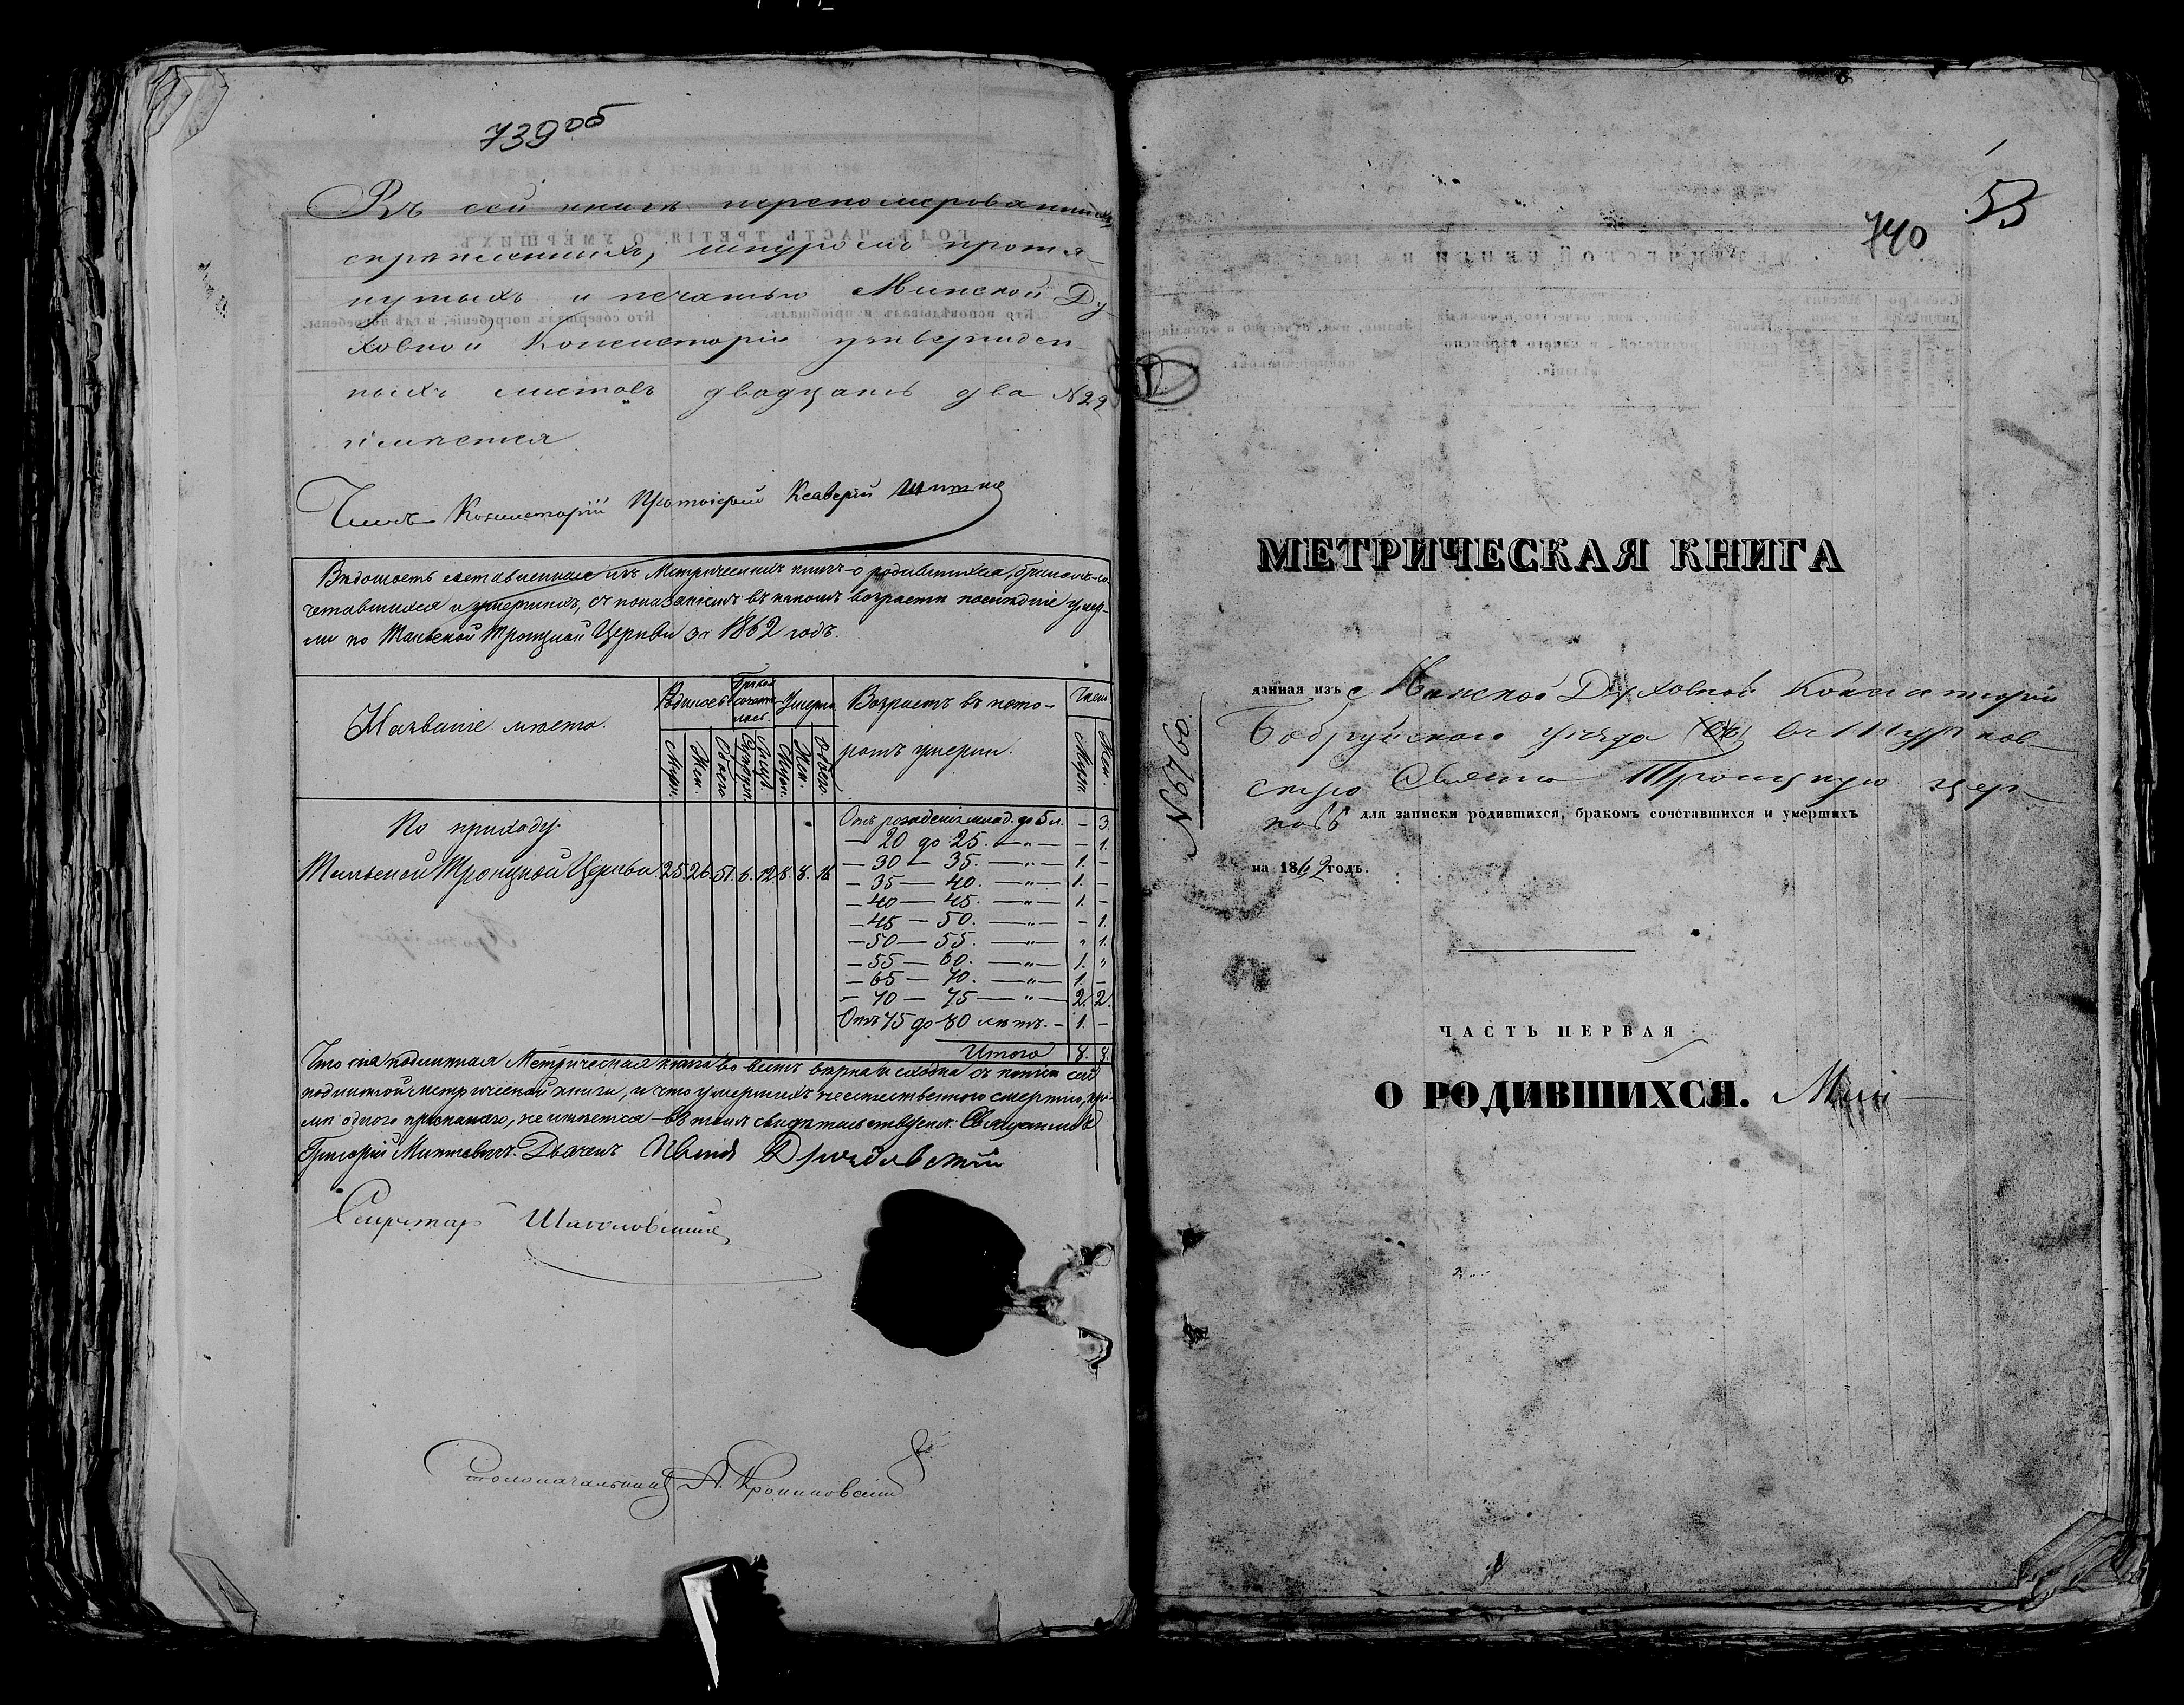 739 об
Въ сей книгѣ переномерованныхъ,
скрѣпленныхъ, шнуромъ протя-
нутыхъ и печатью Минской Ду-
ховной Консисторіи утвержден-
ныхъ листовъ двадцать два № 22
имѣется
Членъ Консисторіи Протоіерей Ксаверій
Вѣдомость составленная изъ Метрическихъ книгъ о родившихся, бракомъ со-
четавшихся и умершихъ, съ показаніемъ въ какомъ возрастѣ послѣдніе умер-
ли по Тальской Троицкой Церкви за 1862 годъ.
Названіе мѣста.
Родилось
Бракомъ сочеталось
Умерло
Возрастъ въ кото-
ромъ умерли.
Число
Муж. Жен. Обоего Муж. Жен. Обоего
Муж. Жен.
По приходу
Тальской Троицкой Церкви 25. 26. 51. 6. 12. 8. 8. 16
Отъ рожденія млад. до 5 л. – 3.
– 20 до 25. –„– – 1.
– 30 – 35. –„– 1. –
– 35 – 40. –„– 1. –
– 40 – 45. –„– 1. –
– 45 – 50. –„– – 1.
– 50 – 55. –„– „ 1.
– 55 – 60. –„– 1. „
– 65 – 70. –„– 1. –
– 70 – 75 –„– 2. 2.
Отъ 75 до 80 лѣтъ. – 1. –
Итого 8. 8.
Что сія подлинная Метрическая книга во всемъ вѣрна и сходна съ копіею сей
подлинной метрической книги, и что умершихъ неестественною смертію, кро-
мѣ одного, не имѣется – въ томъ свидѣтельствуемъ: Священникъ
Григорій Дьячекъ Иванъ
Секретарь
Столоначальникъ А.
53
740
МЕТРИЧЕСКАЯ КНИГА
№ 6790
данная изъ Минской Духовной Консисторіи
Бобруйскаго уѣзда въ
скую Свято Троицкую цер-
ковь для записки родившихся, бракомъ сочетавшихся и умершихъ
на 1862 годъ.
ЧАСТЬ ПЕРВАЯ
О РОДИВШИХСЯ.